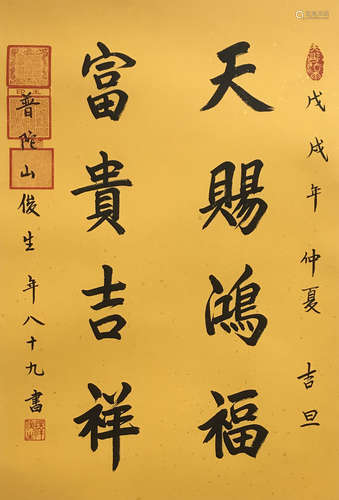 戊戌年仲夏吉旦
天賜鴻福
富貴吉祥
普陀山俊生年八十九書